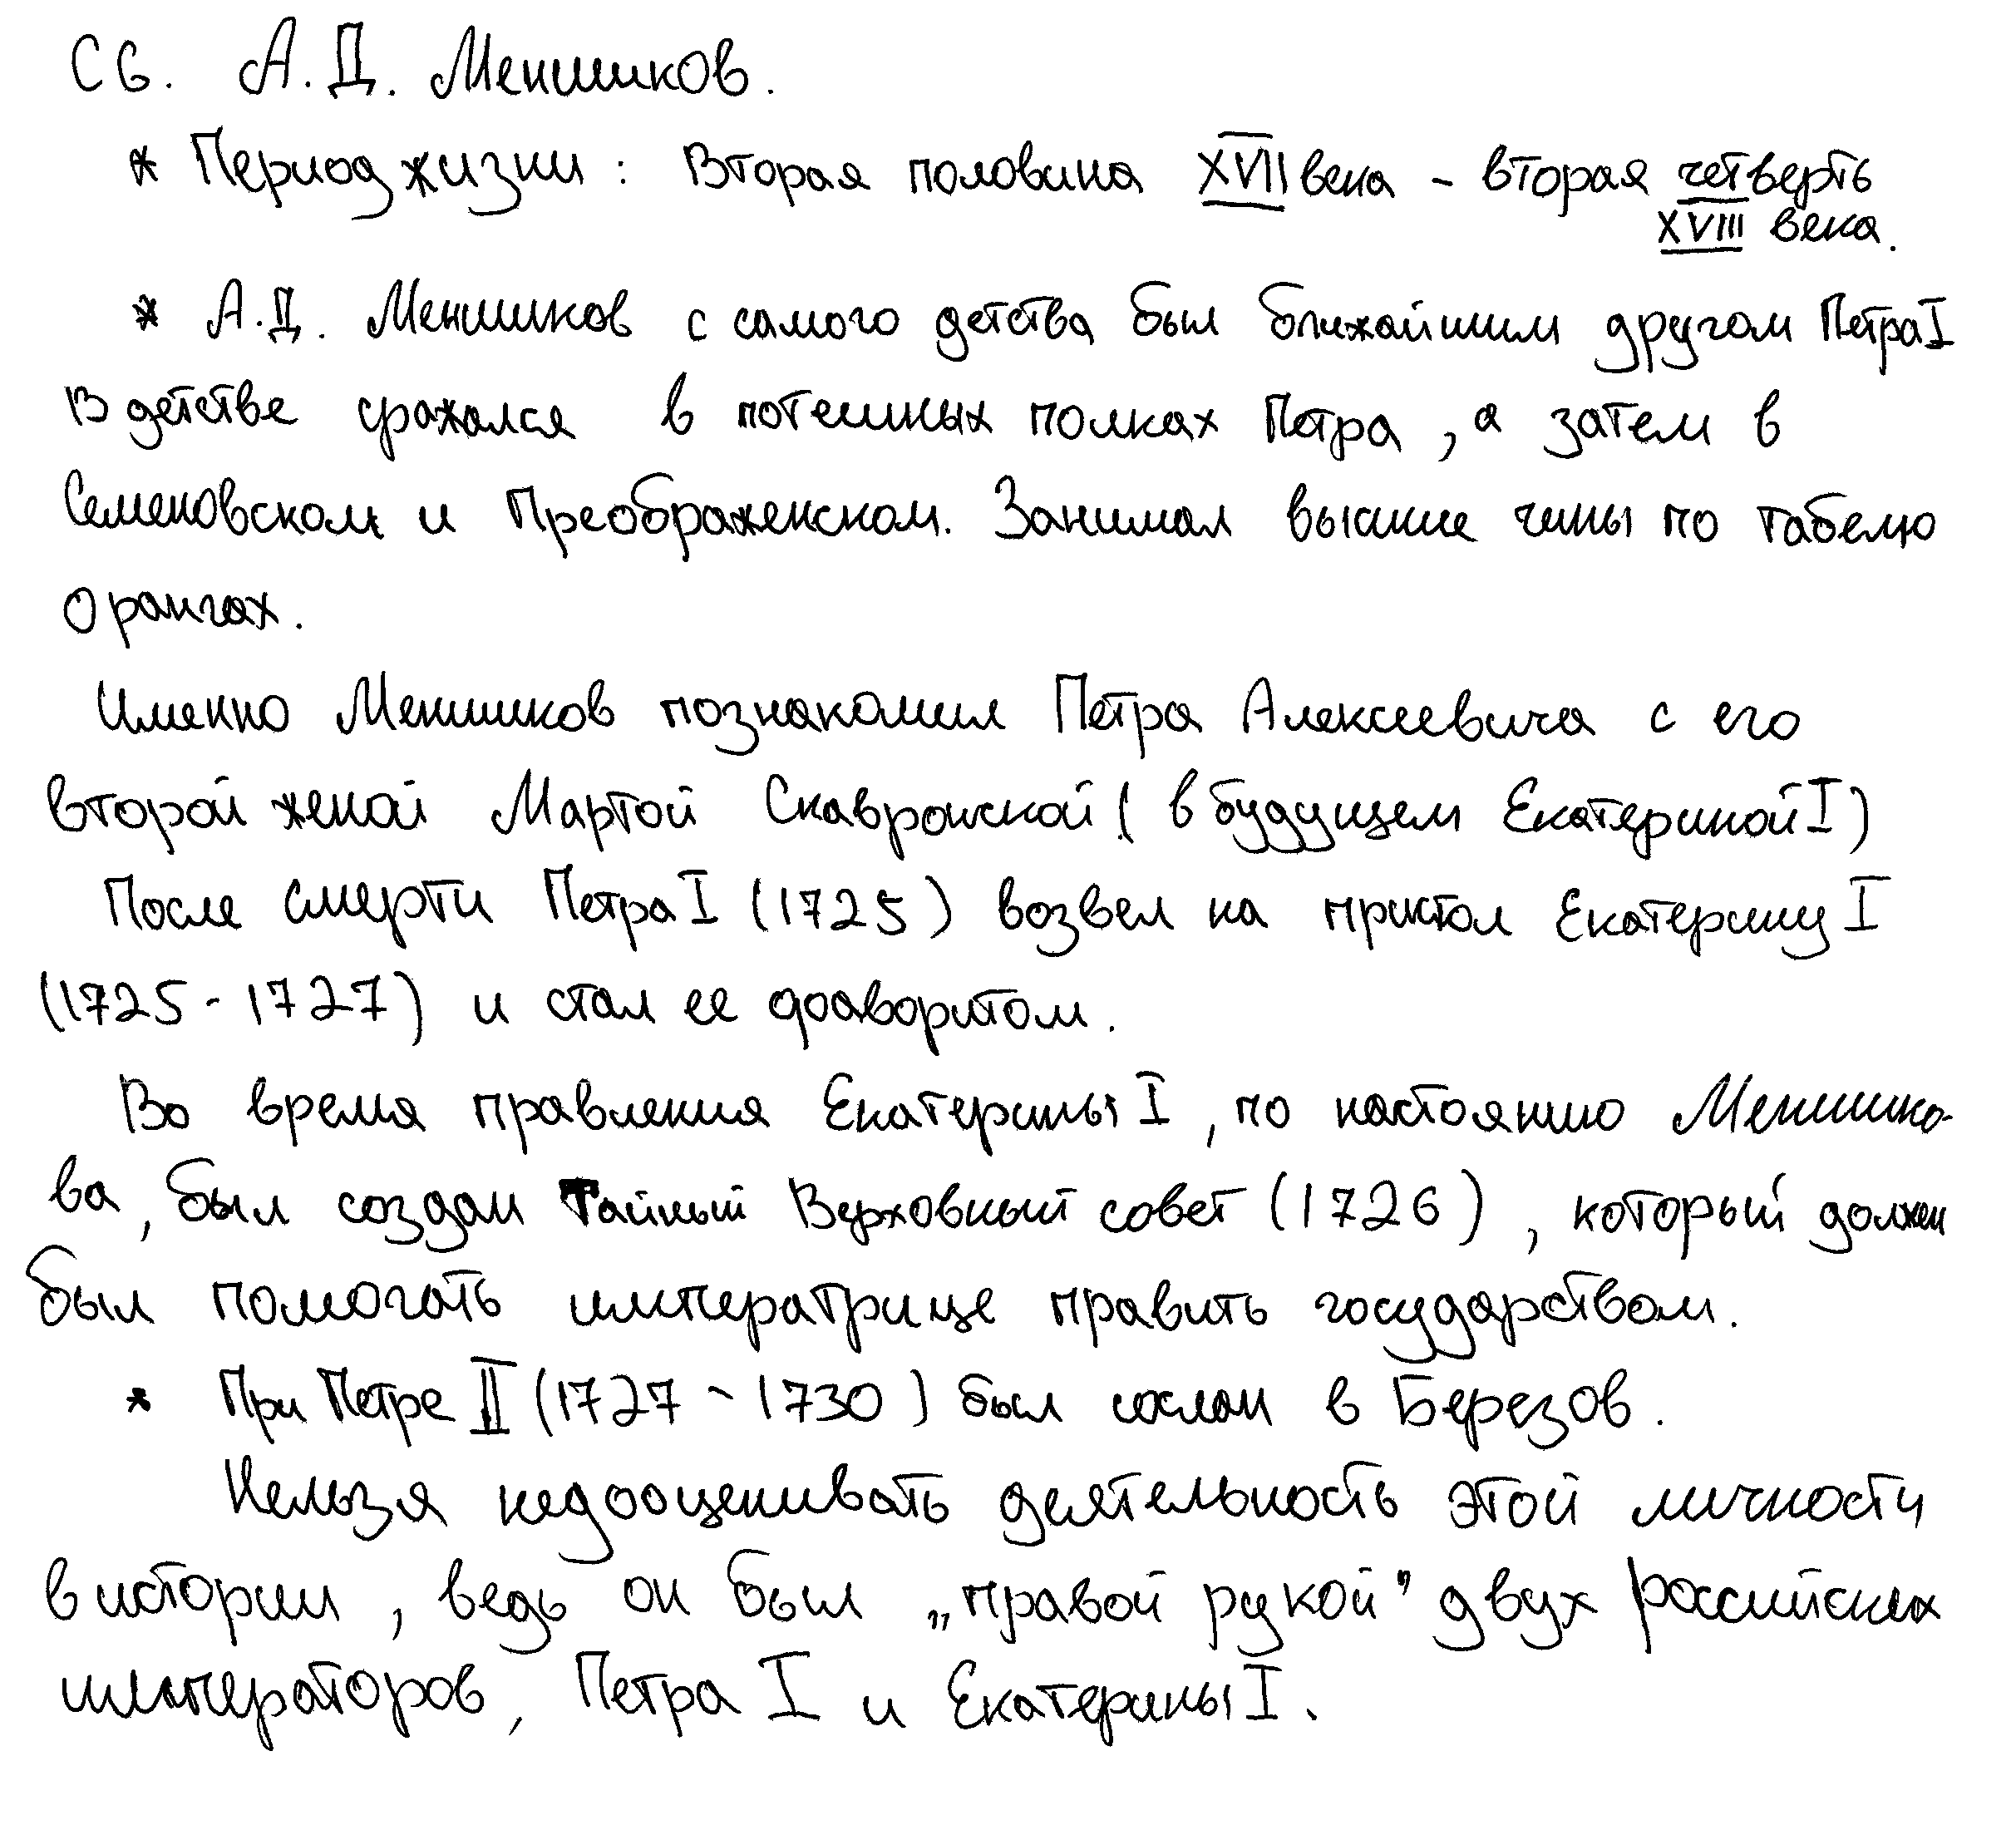 С6. А.Д. Меншиков.
* Период жизни: Вторая половина XVII века - вторая четверть
XVIII века.
* А.Д. Меншиков с самого детства был ближайшим другом Петра I
В детстве сражался в потешных полках Петра, а затем в
Семеновском и Преображенском. Занимал высшие чины по табелю
о рангах.
Именно Меншиков познакомил Петра Алексеевича с его
второй женой Мартой Скавронской (в будущем Екатериной I)
После смерти Петра I (1725) возвел на пристол Екатерину I
(1725 - 1727) и стал ее фаворитом.
Во время правления Екатерины I, по настоянию Меншико-
ва, был создан Тайный Верховный совет (1726), который должен
был помогать императрице править государством.
* При Петре II (1727 - 1730) был сослан в Березов.
Нельзя недооценивать деятельность этой личности
в истории, ведь он был „правой рукой" двух российских
императоров, Петра I и Екатерины I.